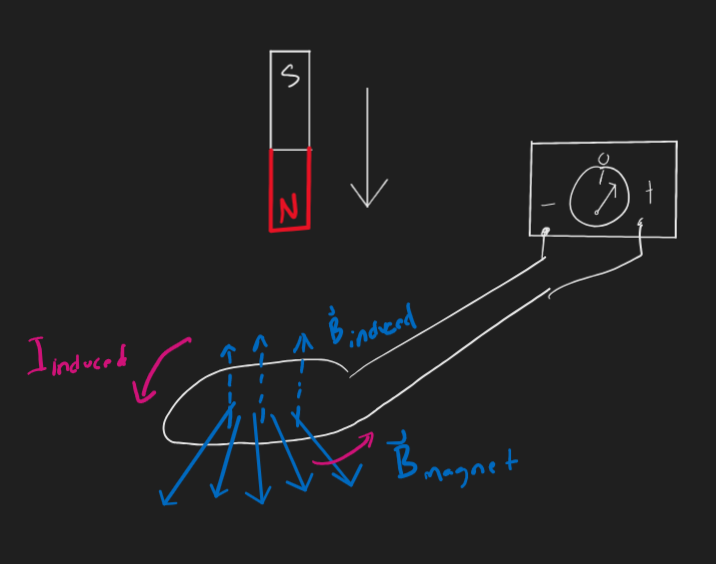 S
N
0
- +
B⃗ induced
I induced
B⃗ magnet